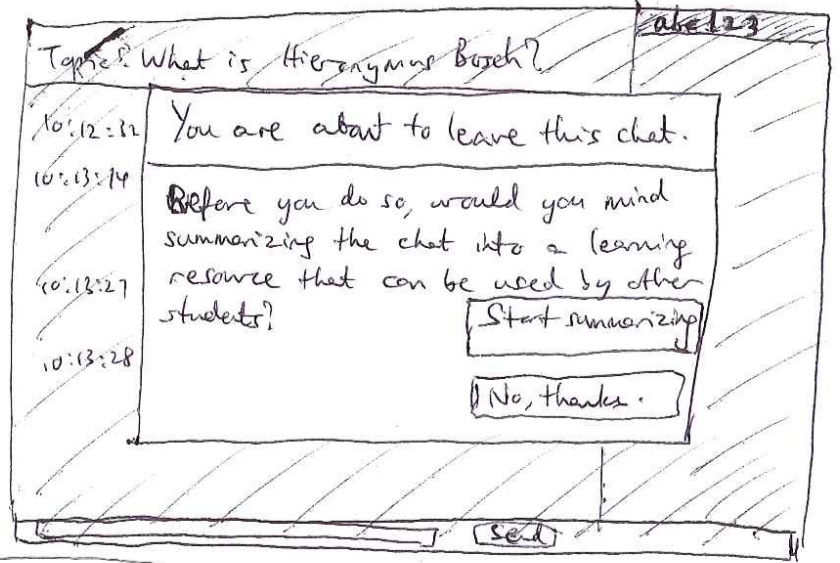 abc123
Topic: What is Hieronymus Bosch?
10:12:32
You are about to leave this chat.
10:13:14
Before you do so, would you mind
summarizing the chat into a learning
10:13:27
resource that can be used by other
students?
Start summarizing
10:13:28
No, thanks.
Send